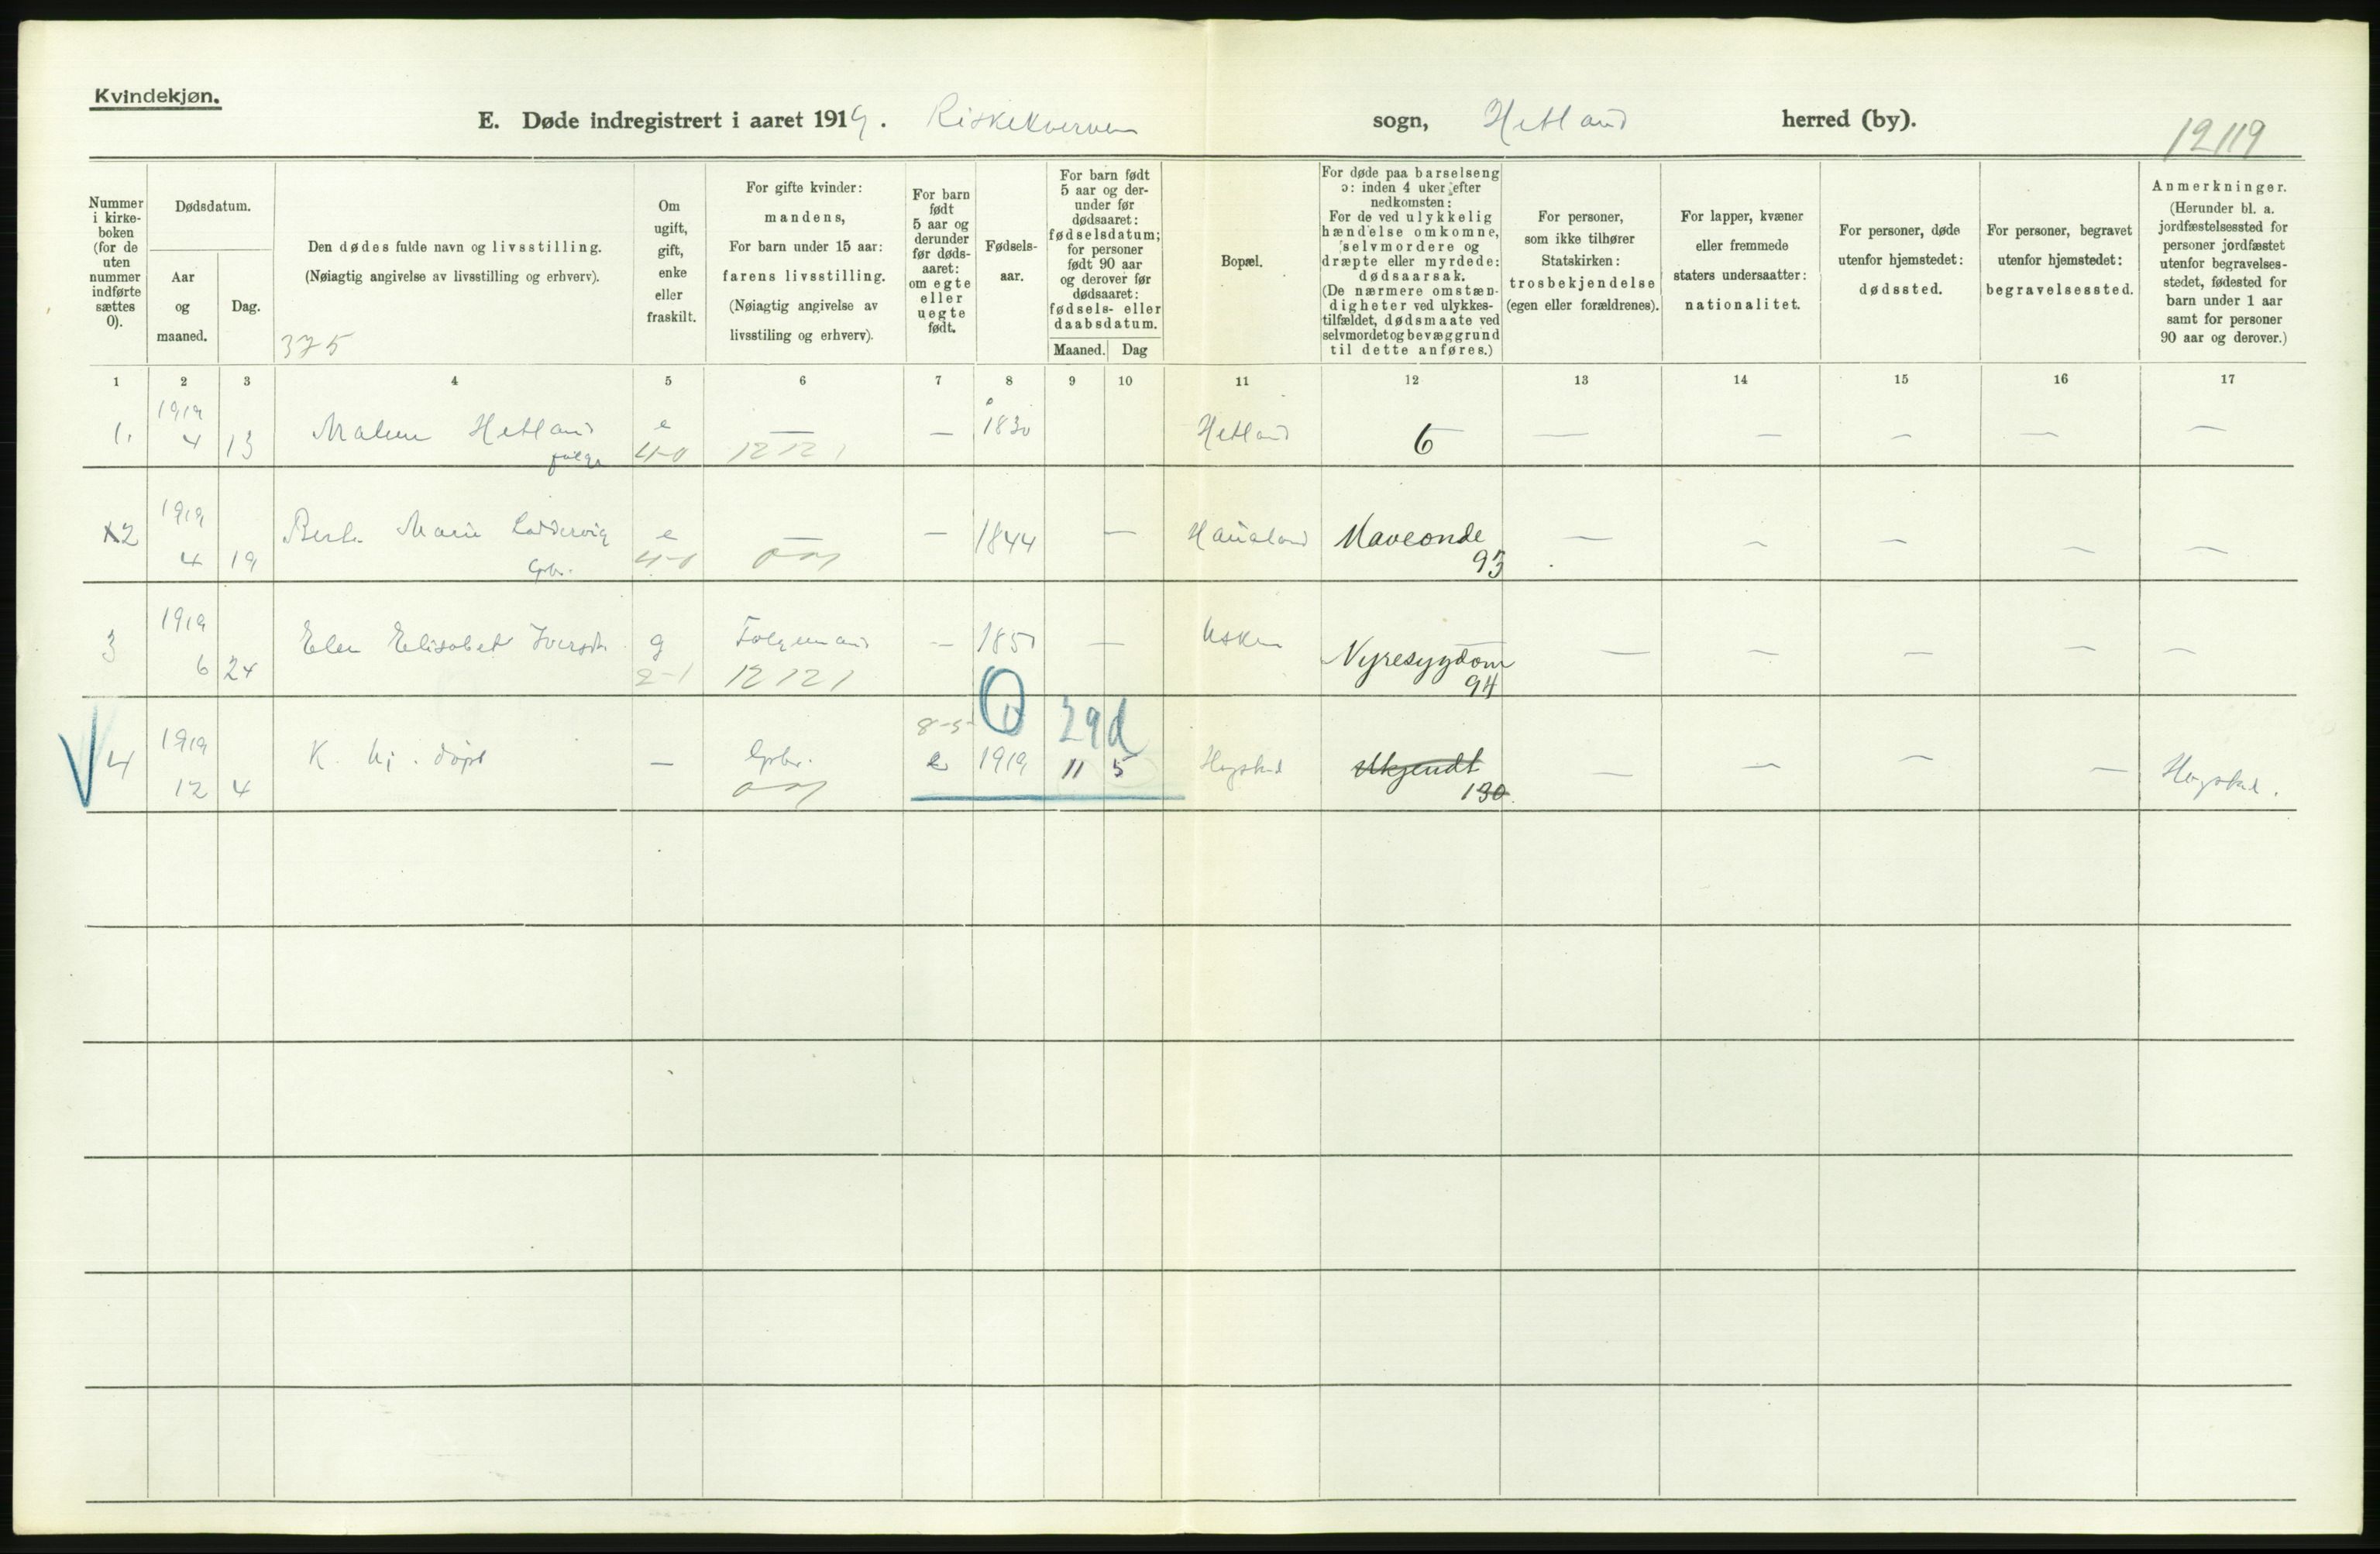 Kvindekjøn.
E. Døde indregistrert i aaret 1919. Riskekverven sogn, Hetland herred (by).
12119
Nummer i kirke-boken (for de uten nummer indførte sættes 0).
Dødsdatum.
Aar og maaned.
Dag.
Den dødes fulde navn og livsstilling.
(Nøiagtig angivelse av livsstilling og erhverv).
375
Om ugift, gift, enke eller fraskilt.
For gifte kvinder: mandens,
For barn under 15 aar: farens livsstilling.
(Nøiagtig angivelse av livsstiling og erhverv).
For barn født 5 aar og derunder før døds-aaret: om egte eller uegte født.
Fødsels-aar.
For barn født 5 aar og der-under før dødsaaret: fødselsdatum; for personer født 90 aar og derover før dødsaaret: fødsels- eller daabsdatum.
Maaned. Dag
Bopæl.
For døde paa barselseng ɔ: inden 4 uker efter nedkomsten:
For de ved ulykkelig hændelse omkomne, selvmordere og dræpte eller myrdede: dødsaarsak.
(De nærmere omstæn-digheter ved ulykkes-tilfældet, dødsmaate ved selvmordet og bevæggrund til dette anføres.)
For personer, som ikke tilhører Statskirken: trosbekjendelse (egen eller forældrenes).
For lapper, kvæner eller fremmede staters undersaatter: nationalitet.
For personer, døde utenfor hjemstedet: dødssted.
For personer, begravet utenfor hjemstedet: begravelsessted.
Anmerkninger.
(Herunder bl. a. jordfæstelsessted for personer jordfæstet utenfor begravelses-stedet, fødested for barn under 1 aar samt for personer 90 aar og derover.)
1 2 3 4 5 6 7 8 9 10 11 12 13 14 15 16 17
1. 1919 4 13 Malene Hetland e — — 1830 Hetland 6 — — — — —
4-0 12121
x2 1919 4 19 Marie e — — 1844 — Haualand Maveonde — — — — —
Gbr. 4-0 93
3 1919 6 24 Elen Elisabet g Folgemand — 1851 — Usken Nyresygdom — — — — —
2-1 12121 94
8-5 29d
V 4 1919 12 4 K. Uj. døpt — Gbr. e 1919 11 5 Hogstad Ukjendt — — — — Hogstad.
130